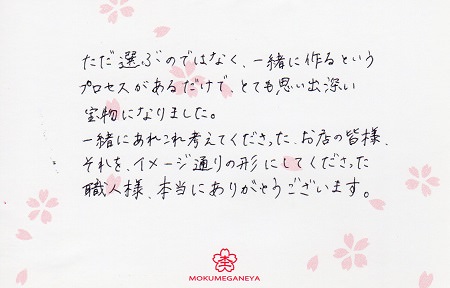 ただ選ぶのではなく、一緒に作るという
プロセスがあるだけで、とても思い出深い
宝物になりました。
一緒にあれこれ考えてくださった、お店の皆様、
それを、イメージ通りの形にしてくださった
職人様、本当にありがとうございます。
杢
MOKUMEGANEYA